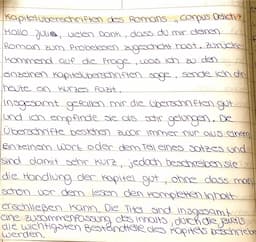 Kapitelüberschriften des Romans "Corpus Delicti"
Hallo Julia, vielen Dank, dass du mir deinen
Roman zum Probelesen zugeschickt hast. Zurück
kommend auf die Frage, was ich zu den
einzelnen Kapitelüberschriften sage, sende ich dir
heute ein kurzes Fazit.
Insgesamt gefallen mir die Überschriften gut
und ich empfinde sie als sehr gelungen. Die
Überschrifte bestehen zwar immer nur aus einem
einzelnem Wort oder dem Teil eines Satzes und
sind damit sehr kurz, jedoch beschreiben sie
die Handlung der Kapitel gut, ohne dass man
schon vor dem lesen den kompletten Inhalt
erschließen kann. Die Titel sind insgesamt
eine zusammenfassung des Inhalts, durch die jeweils
die wichtigsten Bestandteile des Kapitels beschrieben
werden.